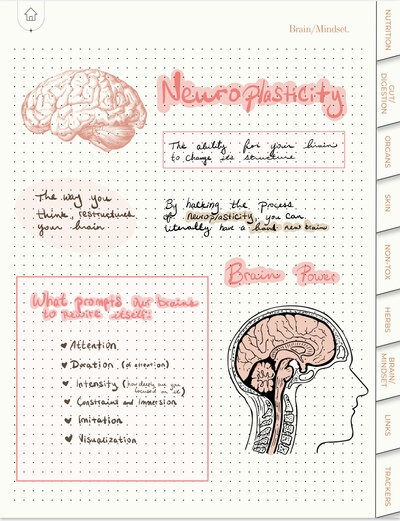 Brain/Mindset.
Neuroplasticity
The ability for your brain
to change its structure
The way you
think, restructures
your brain
By hacking the process
of neuroplasticity, you can
literally have a brand new brain
Brain Power
What prompts our brains
to rewire itself:
Attention
Duration (of attention)
Intensity (how deeply are you
focused on it)
Constraint and Immersion
Imitation
Visualization
NUTRITION
GUT/
DIGESTION
ORGANS
SKIN
NON-TOX
HERBS
BRAIN/
MINDSET
LINKS
TRACKERS